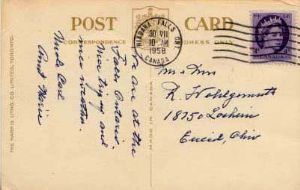 POST CARD
CORRESPONDENCE
ADDRESS ONLY
NIAGARA FALLS ONT
30 VII
10 AM
1958
CANADA
CANADA
THE HARRIS LITHO. CO. LIMITED, TORONTO.
MADE IN CANADA
We are at the
Falls Ontario.
Nice trip and
nice weather.
Uncle Carl
Aunt Marie
Mr. Mrs
R. Wohlgemuth
18750 Lochein
Euclid, Ohio